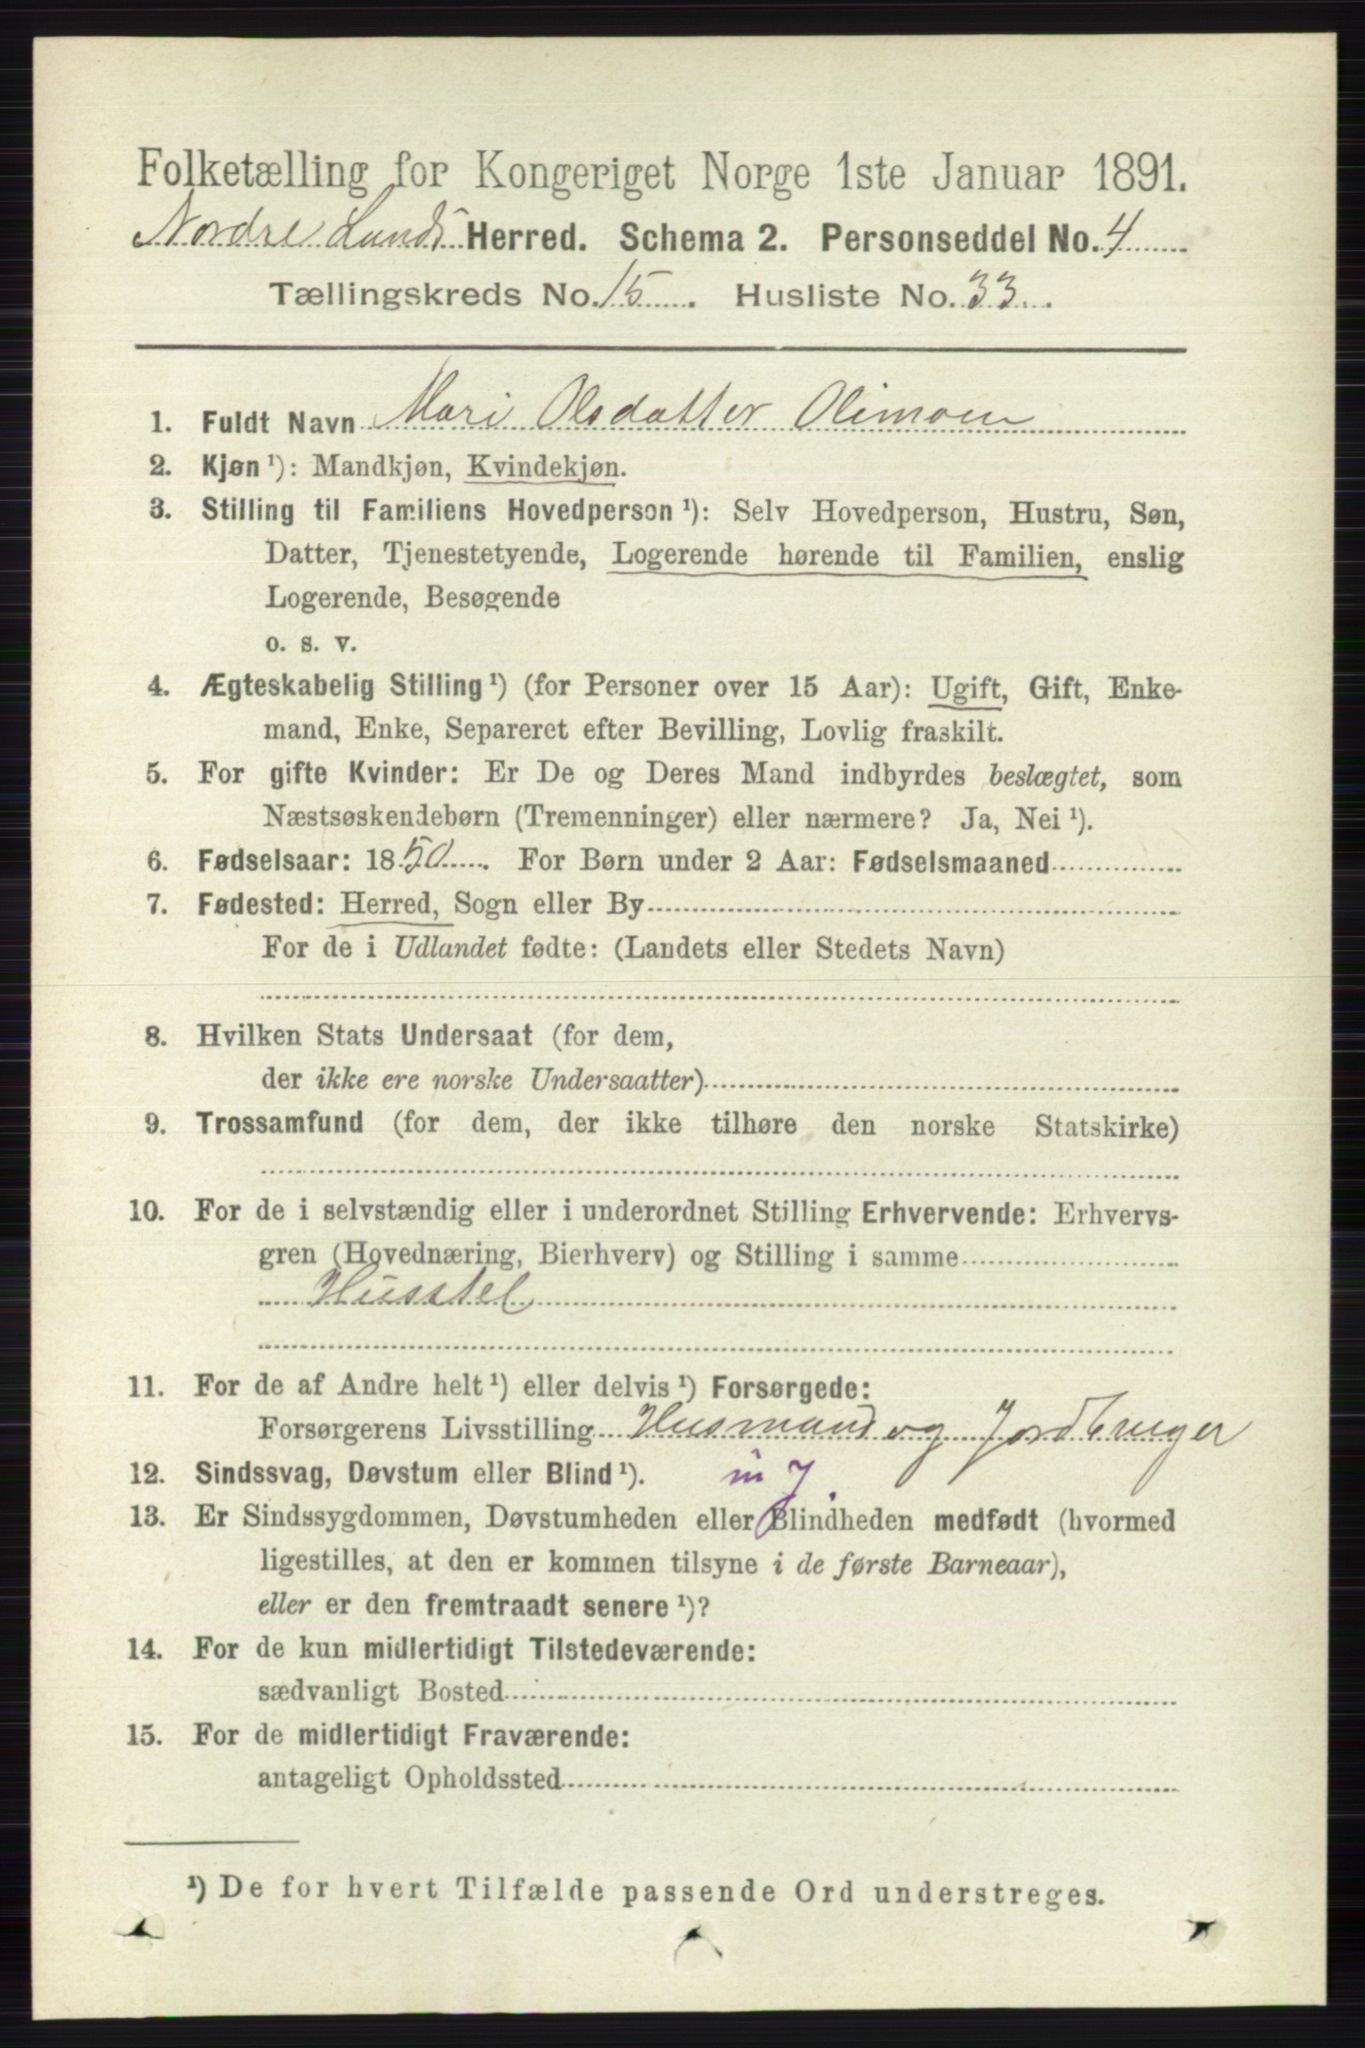 Folketælling for Kongeriget Norge 1ste Januar 1891.
Nordre Lands Herred. Schema 2. Personseddel No. 4
Tællingskreds No. 15. Husliste No. 33.
1. Fuldt Navn Mari Olsdatter Olimoen
2. Kjøn ¹): Mandkjøn, Kvindekjøn.
3. Stilling til Familiens Hovedperson ¹): Selv Hovedperson, Hustru, Søn,
Datter, Tjenestetyende, Logerende hørende til Familien, enslig
Logerende, Besøgende
o. s. v.
4. Ægteskabelig Stilling ¹) (for Personer over 15 Aar): Ugift, Gift, Enke-
mand, Enke, Separeret efter Bevilling, Lovlig fraskilt.
5. For gifte Kvinder: Er De og Deres Mand indbyrdes beslægtet, som
Næstsøskendebørn (Tremenninger) eller nærmere? Ja, Nei ¹).
6. Fødselsaar: 1850. For Børn under 2 Aar: Fødselsmaaned
7. Fødested: Herred, Sogn eller By
For de i Udlandet fødte: (Landets eller Stedets Navn)
8. Hvilken Stats Undersaat (for dem,
der ikke ere norske Undersaatter)
9. Trossamfund (for dem, der ikke tilhøre den norske Statskirke)
10. For de i selvstændig eller i underordnet Stilling Erhvervende: Erhvervs-
gren (Hovednæring, Bierhverv) og Stilling i samme
Husstel
11. For de af Andre helt ¹) eller delvis ¹) Forsørgede:
Forsørgerens Livsstilling Husmand og Jordbruger
12. Sindssvag, Døvstum eller Blind ¹).
13. Er Sindssygdommen, Døvstumheden eller Blindheden medfødt (hvormed
ligestilles, at den er kommen tilsyne i de første Barneaar),
eller er den fremtraadt senere ¹)?
14. For de kun midlertidigt Tilstedeværende:
sædvanligt Bosted
15. For de midlertidigt Fraværende:
antageligt Opholdssted
¹) De for hvert Tilfælde passende Ord understreges.